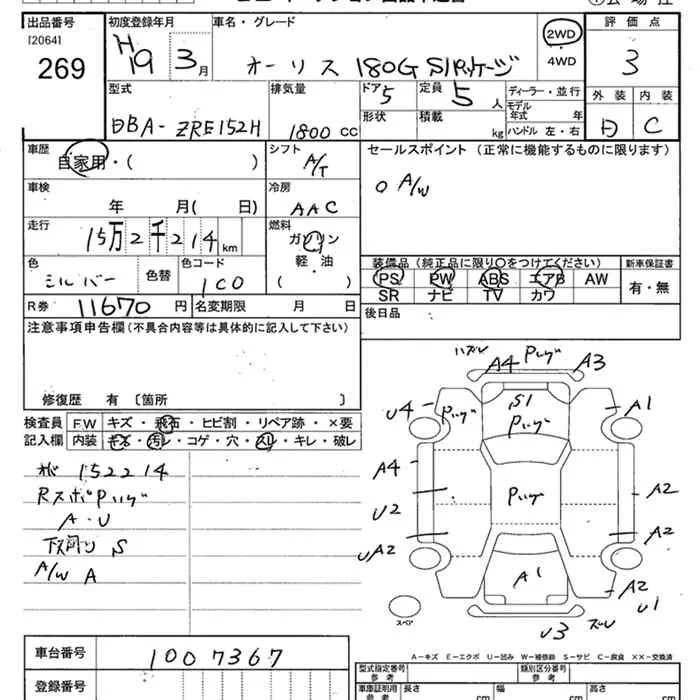 出品番号
[2064]
269
初度登録年月
H19 3月
車名・グレード
オーリス 180G Sパッケージ
2WD
・
4WD
評価点
3
外装 内装
D C
型式
DBA-ZRE152H
排気量
1800 CC
ドア 5
形状
定員 5 人
積載 kg
ディーラー・並行
モデル
年式 年
ハンドル 左・右
車歴
自家用・( )
シフト
A/T
セールスポイント(正常に機能するものに限ります)
○ A/W
車検
年 月( 日)
冷房
AAC
走行
15万2千214km
燃料
ガソリン
軽・油
( )
色
シルバー
色替
色コード
1C0
装備品(純正品に限り○をつけてください)
PS PW ABS エアB AW
SR ナビ TV カワ
新車保証書
有・無
R券 11670 円
名変期限 月 日
後日品
注意事項申告欄(不具合内容等は具体的に記入して下さい)
修復歴 有 〔箇所 〕
検査員
記入欄
F.W キズ・飛石・ヒビ割・リペア跡・×要
内装 キズ・汚レ・コゲ・穴・スレ・キレ・破レ
152214
RスポPハゲ
A・U
下廻り S
A/W A
ハズレ
A4 Pハゲ A3
U4 Pハゲ S1 Pハゲ A1
A4 Pハゲ A2
U2 A2
UA2 A1 A2
U1
U3 ズレ
スペア
A-キズ E-エクボ U-凹み W-補修跡 S-サビ C-腐食 ××-交換済
車台番号
1007367
登録番号
型式指定番号
参考
類別区分番号
参考
車庫証明用
参考
長さ cm
幅 cm
高さ cm